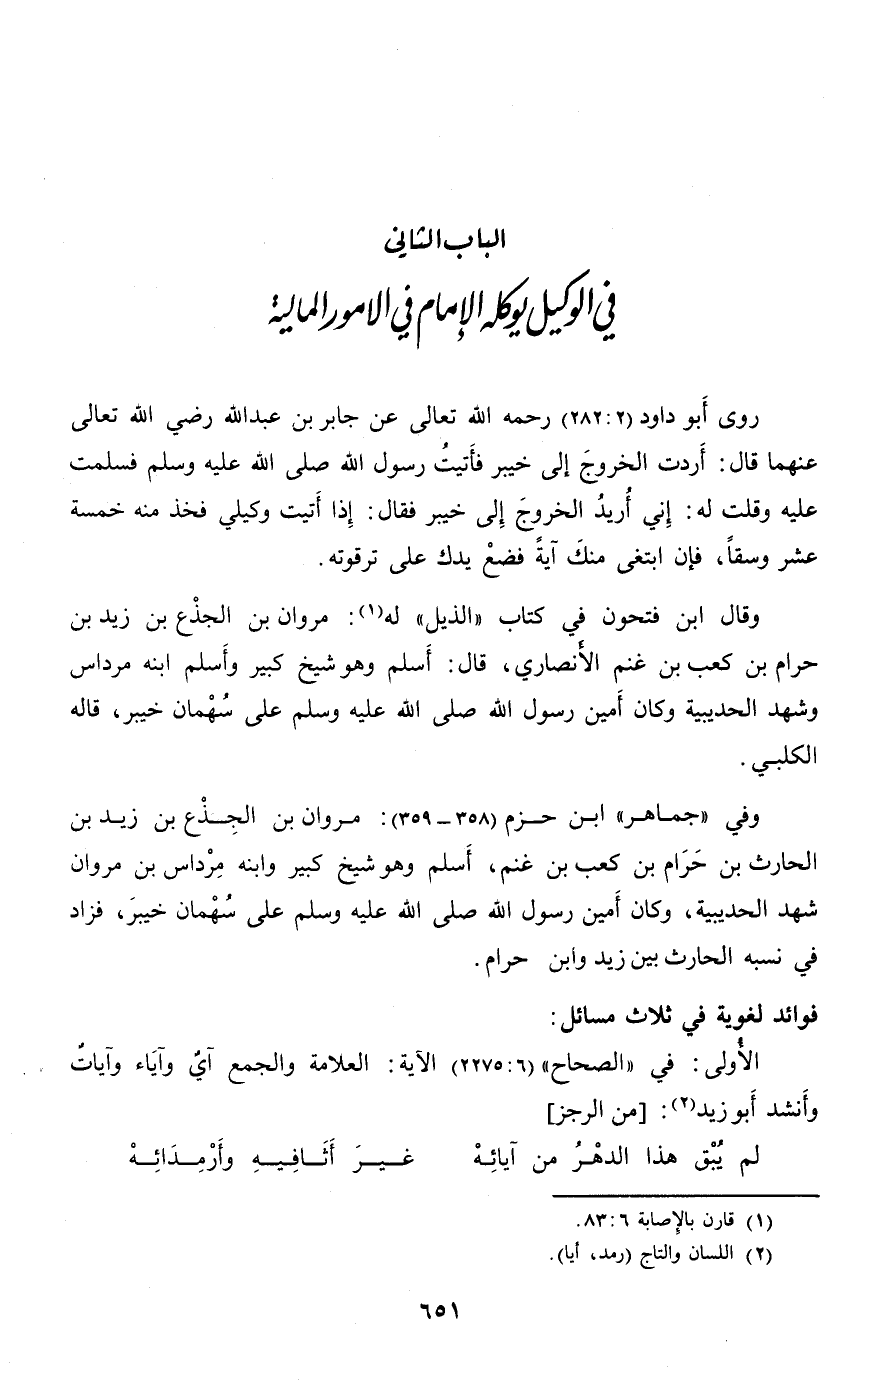 الباب الثاني
في الوكيل يوكله الإمام في الامور المالية
روى أبو داود (٢٨٢:٢) رحمه الله تعالى عن جابر بن عبدالله رضي الله تعالى
عنهما قال: أردت الخروجَ إلى خيبر فأتيتُ رسول الله صلى الله عليه وسلم فسلمت
عليه وقلت له: إني أُريدُ الخروجَ إلى خيبر فقال: إذا أتيت وكيلي فخذ منه خمسة
عشر وسقاً، فإن ابتغى منكَ آيةً فضعْ يدك على ترقوته.
وقال ابن فتحون في كتاب «الذيل» له(١): مروان بن الجذْع بن زيد بن
حرام بن كعب بن غنم الأنصاري، قال: أسلم وهو شيخ كبير وأسلم ابنه مرداس
وشهد الحديبية وكان أمين رسول الله صلى الله عليه وسلم على سُهْمان خيبر، قاله
الكلبي.
وفي «جماهر» ابن حزم (٣٥٨ ــ ٣٥٩): مروان بن الجِذْع بن زيد بن
الحارث بن حَرَام بن كعب بن غنم، أسلم وهو شيخ كبير وابنه مِرْداس بن مروان
شهد الحديبية، وكان أمين رسول الله صلى الله عليه وسلم على سُهْمان خيبرَ، فزاد
في نسبه الحارث بين زيد وابن حرام.
فوائد لغوية في ثلاث مسائل:
الأُولى: في «الصحاح» (٢٢٧٥:٦) الآية: العلامة والجمع آيٌ وآيَاء وآياتٌ
وأنشد أبو زيد(٢): [من الرجز]
لم يُبْق هذا الدهْرُ من آيائِهْ غيرَ أَثَافِيهِ وأَرْمِدَائِهْ
(١) قارن بالإصابة ٨٣:٦.
(٢) اللسان والتاج (رمد، أيا).
٦٥١